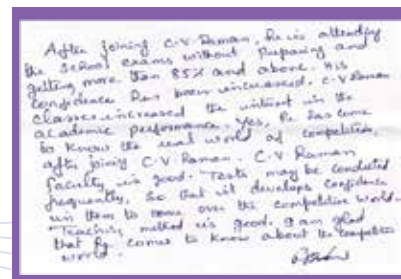 After joining C.V Raman, he is attending
the school exams without preparing and
getting more than 85% and above. His
confidence has been increased. C.V Raman
classes increased the interest in the
academic performance. Yes, he has come
to know the real world of competition,
after joining C.V Raman. C.V. Raman
faculty is good. Tests may be conducted
frequently, so that it develops confidence
in them to come over the competitive world.
Teaching method is good. I am glad
that he comes to know about the competitive
world.